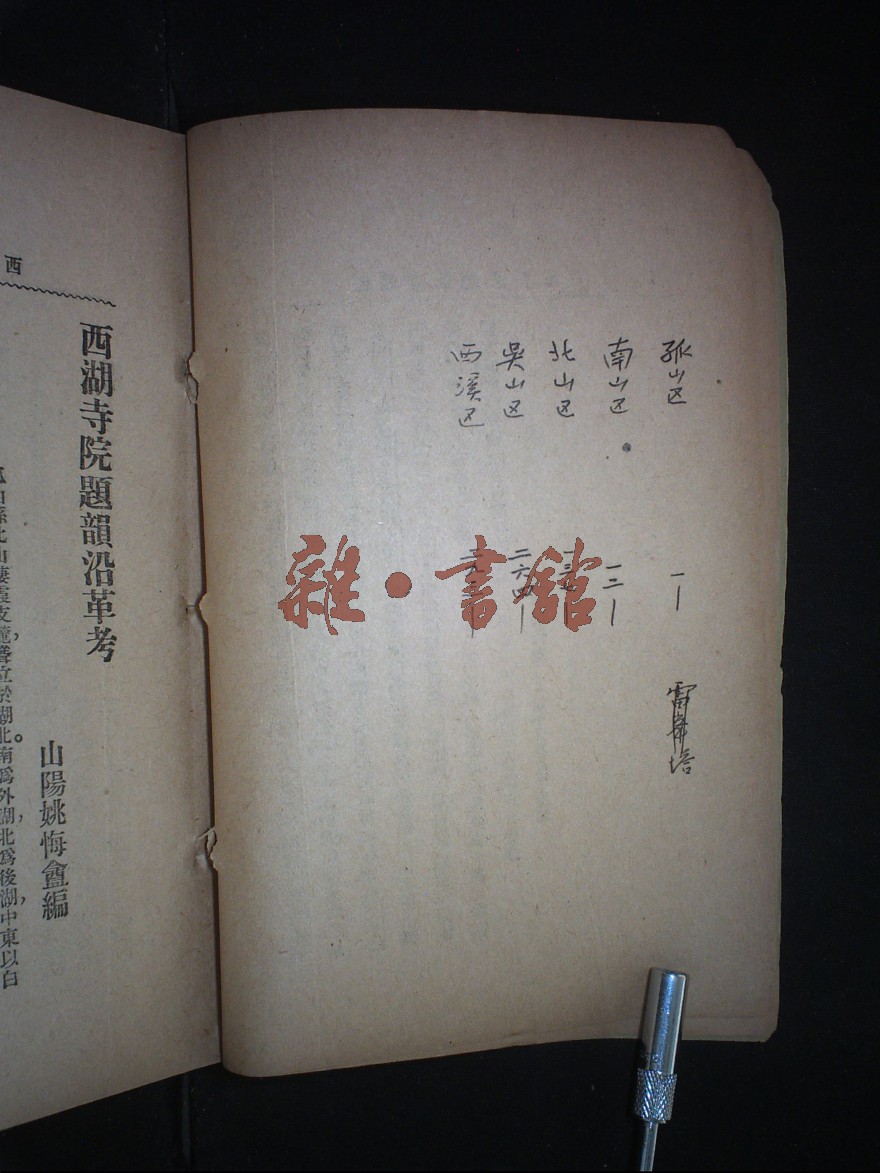 孤山区 一—
雷峰塔
南山区 一二—
北山区
吳山区 二六四—
西溪区
雜·書館
西
西湖寺院題韻沿革考
山陽姚悔盦編
山係北山棲霞支麓,聳立於湖北。南爲外湖,北爲後湖,中東以白